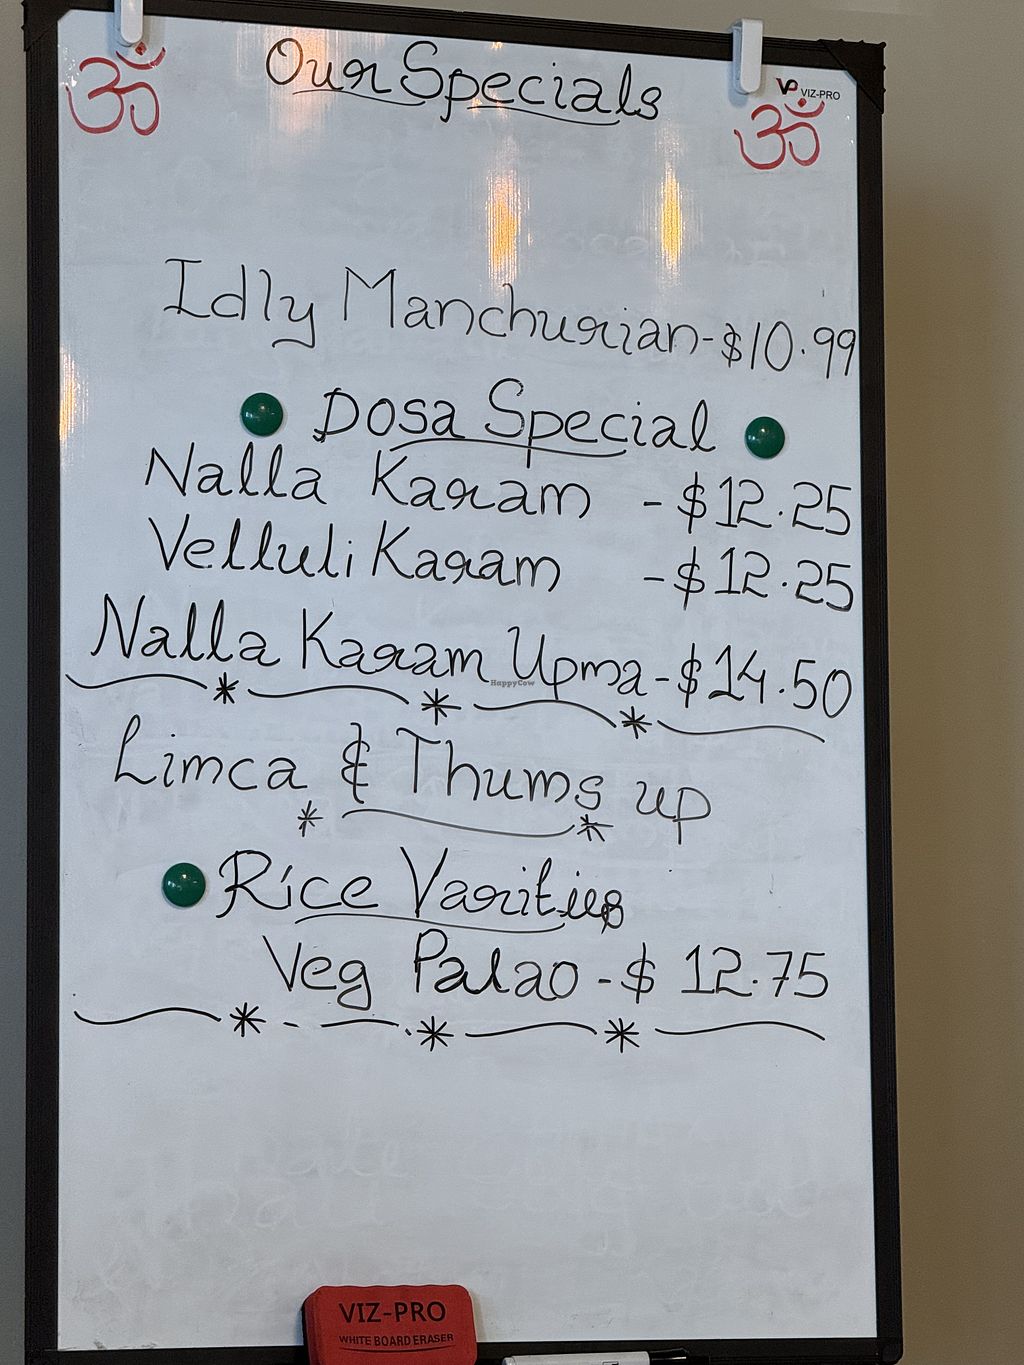 ॐ Our Specials ॐ
VP VIZ-PRO
Idly Manchurian-$10.99
Dosa Special
Nalla Karam - $12.25
Velluli Karam - $12.25
Nalla Karam Upma - $14.50
HappyCow
Limca & Thums up
Rice Varities
Veg Palao - $ 12.75
VIZ-PRO
WHITE BOARD ERASER